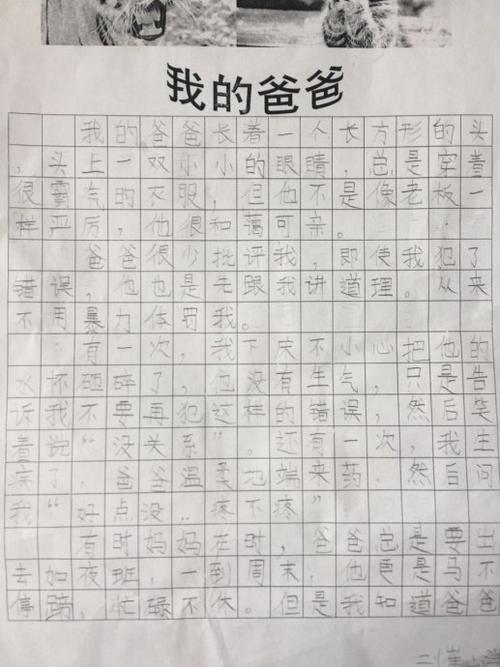 我的爸爸
我的爸爸长着一个长方形的头
，头上一双小小的眼睛，总是穿着
很霸气的衣服，但他不是像老板一
样严厉，他很和蔼可亲。
爸爸很少批评我，即使我犯了
错误，他也是先跟我讲道理。从来
不用暴力体罚我。
有一次，我下床不小心把他的
水杯砸碎了，他没有生气，只是告
诉我不要再犯这样的错误，然后笑
着说“没关系”。还有一次，我生
病了，爸爸温柔地端来药，然后问
我“好点没..疼不疼”
有时妈妈在时，爸爸总是要出
去加夜班，一到周末，他更是马不
停蹄，忙碌不休。但是我知道爸爸